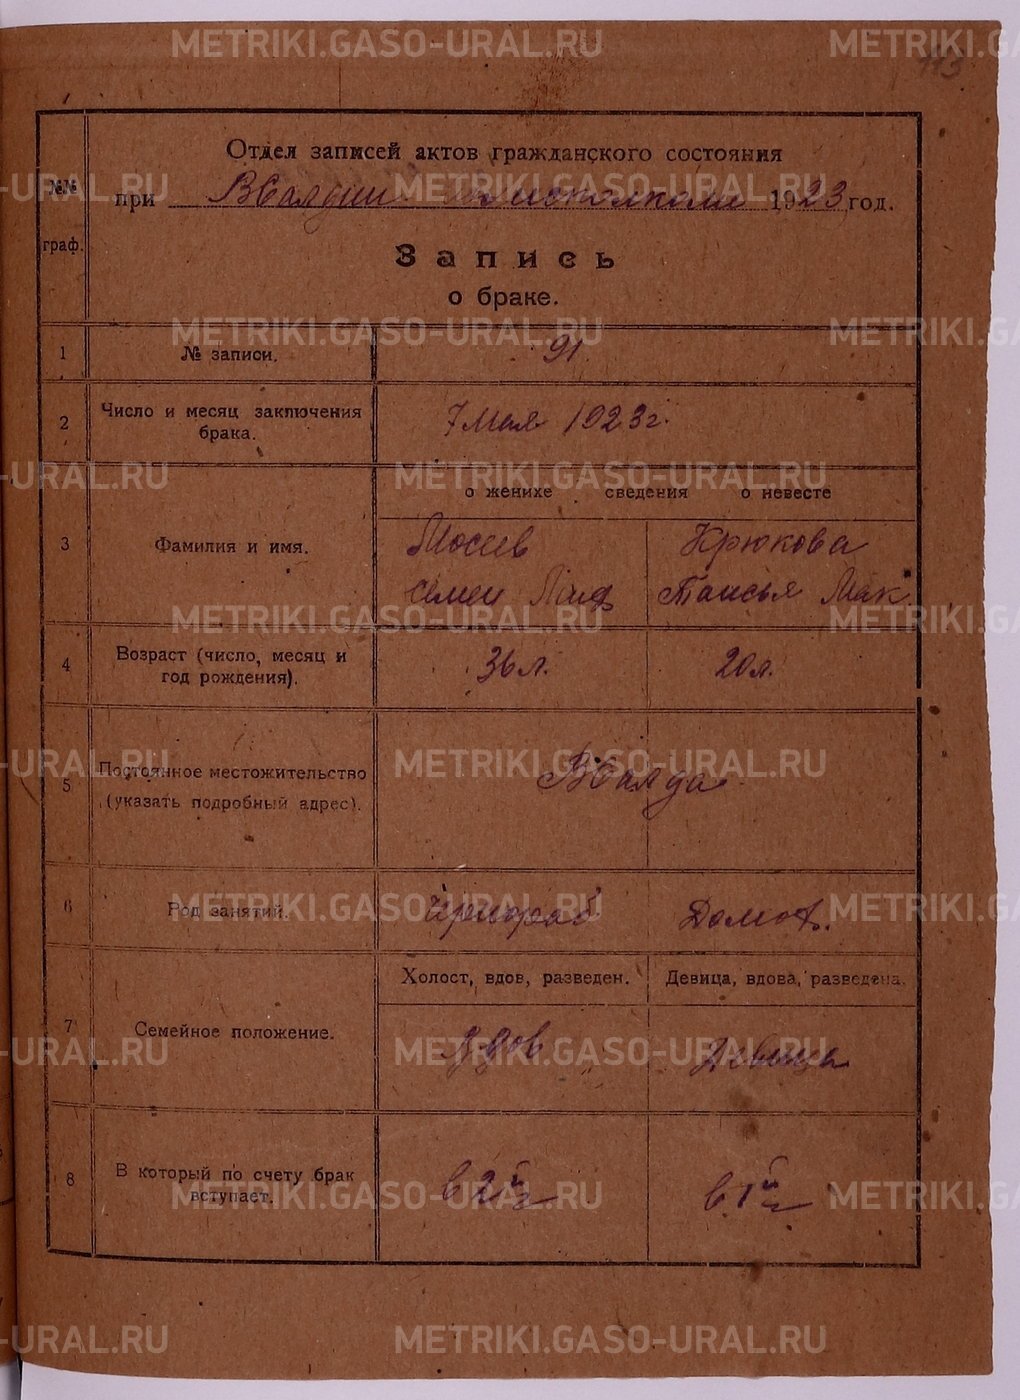 113
Отдел записей актов гражданского состояния
при ВСалдин исполкоме 1923 год.
№№ граф.
Запись
о браке.
1 № записи. 91
2 Число и месяц заключения
брака. 7 Мая 1923 г.
о женихе сведения о невесте
3 Фамилия и имя.
Мосев Крюкова
Семен Панф Таисья Мак
4 Возраст (число, месяц и
год рождения). 36 л. 20 л.
5 Постоянное местожительство
(указать подробный адрес). ВСалда
6 Род занятий. Чернораб Домох.
Холост, вдов, разведен. Девица, вдова, разведена.
7 Семейное положение. Вдов Девица
8 В который по счету брак
вступает. в 2й в 1й
METRIKI.GASO-URAL.RU